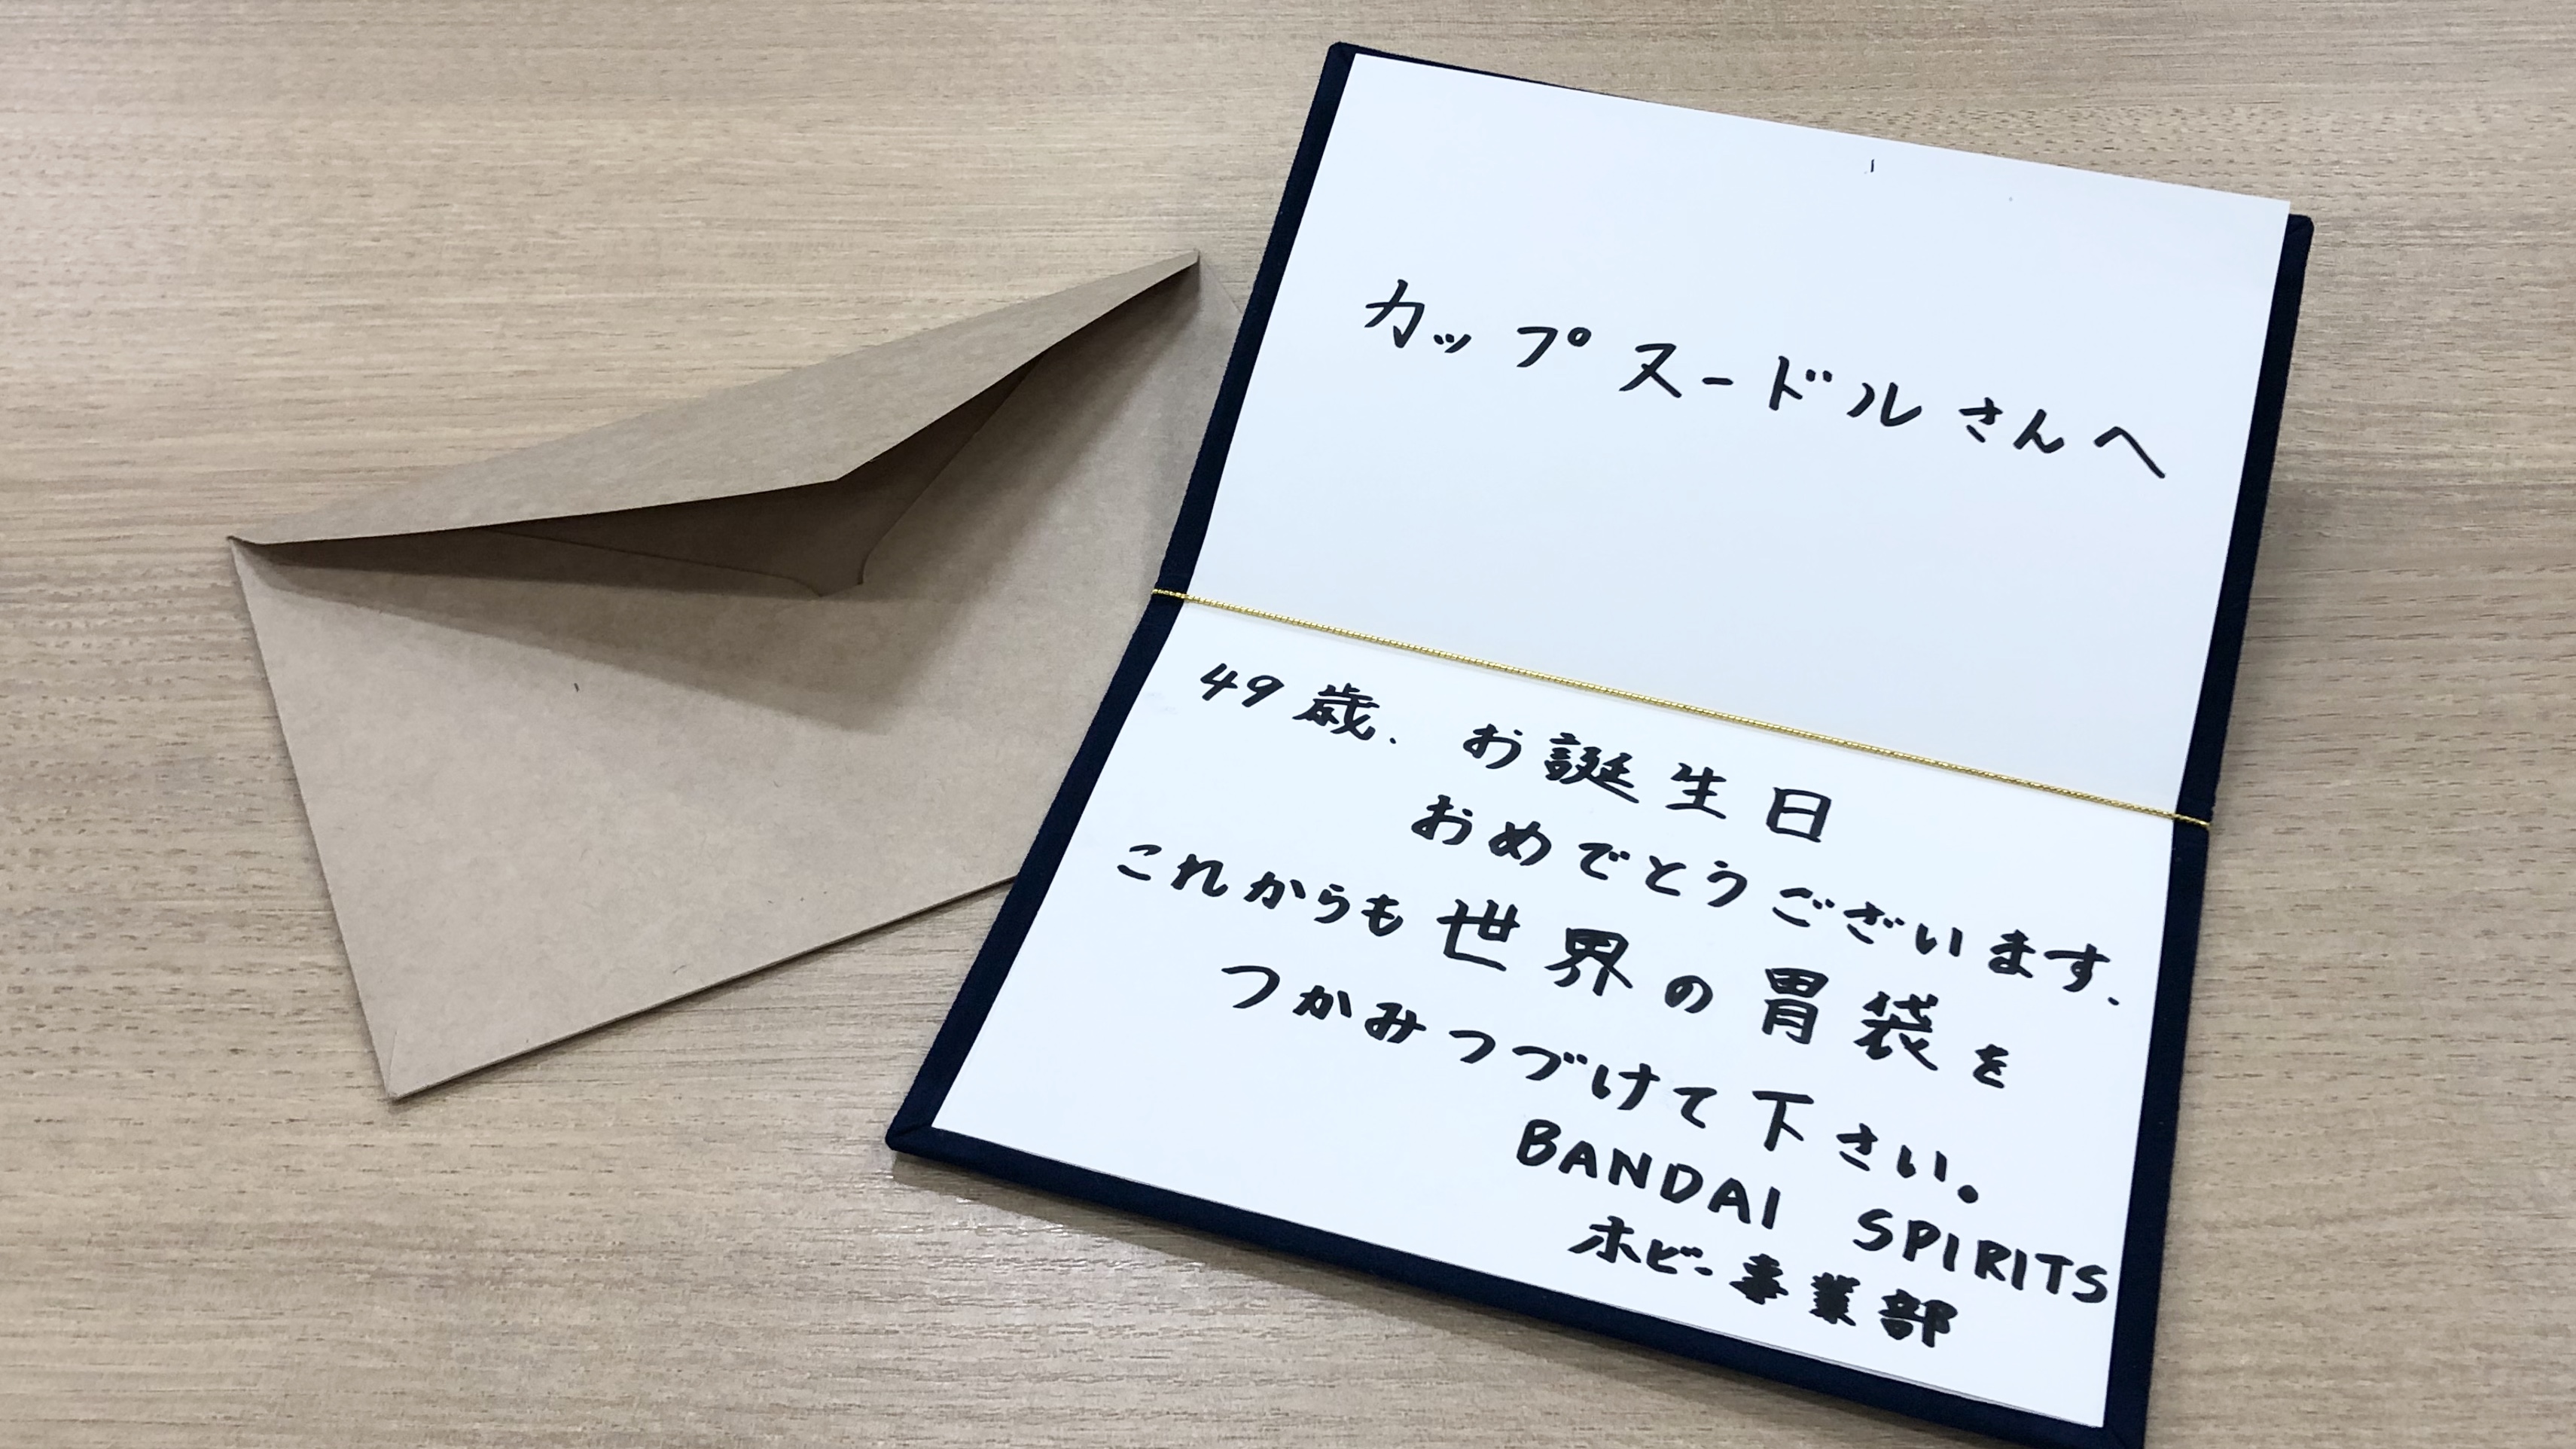 カップヌードルさんへ
49歳、お誕生日
おめでとうございます、
これからも世界の胃袋を
つかみつづけて下さい。
BANDAI SPIRITS
ホビー事業部